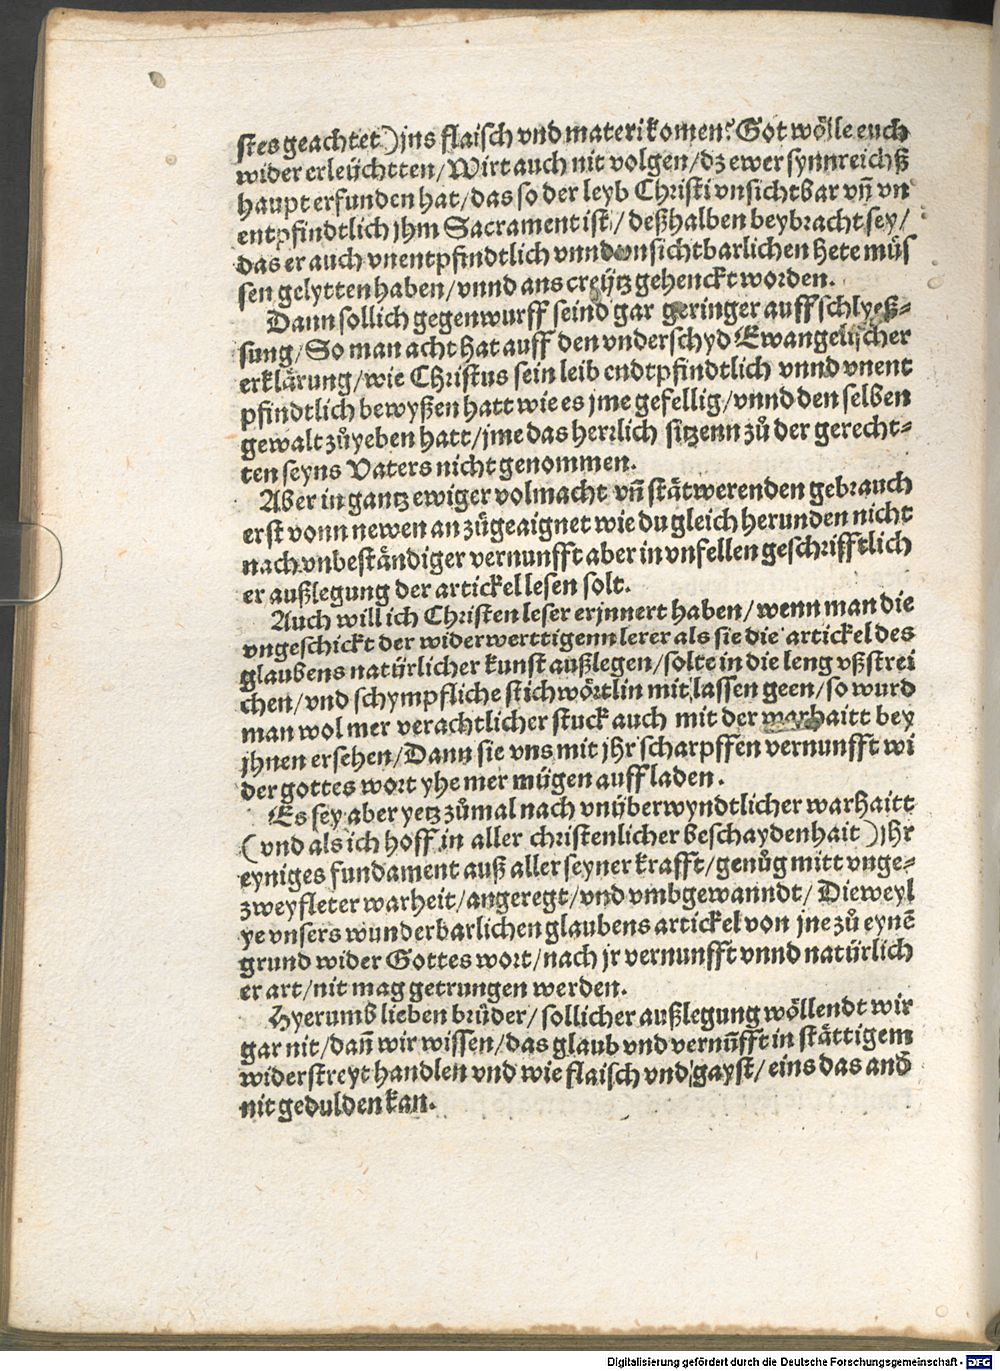 stes geachtet) jns flaisch vnd materi komen? Got wölle euch
wider erleüchtten / Wirt auch nit volgen / dz ewer synnreichß
haupt erfunden hat / das so der leyb Christi vnsichtbar vñ vn
entpfindtlich jhm Sacrament ist / deßhalben beybracht sey /
das er auch vnentpfindtlich vnnd onsichtbarlichen hete müs
sen gelytten haben / vnnd ans creÿtz gehenckt worden.
Dann sollich gegenwurff seind gar geringer auffschlyeß⸗
sung / So man acht hat auff den vnderschyd Ewangelischer
erklärung / wie Christus sein leib endtpfindtlich vnnd vnent
pfindtlich bewyßen hatt wie es jme gefellig / vnnd den selben
gewalt zůyeben hatt / jme das herrlich sitzenn zů der gerecht⸗
ten seyns Vaters nicht genommen.
Aber in gantz ewiger volmacht vñ stätwerenden gebrauch
erst vonn newen anzügeaignet wie du gleich herunden nicht
nach vnbeständiger vernunfft aber in vnfellen geschrifftlich
er außlegung der artickel lesen solt.
Auch will ich Christen leser erjnnert haben / wenn man die
vngeschickt der widerwerttigenn lerer als sie die artickel des
glaubens natürlicher kunst außlegen / solte in die leng vßstrei
chen / vnd schympfliche stichwörtlin mit lassen geen / so wurd
man wol mer verachtlicher stuck auch mit der warhaitt bey
jhnen ersehen / Dann sie vns mit jhr scharpffen vernunfft wi
der gottes wort yhe mer mügen auffladen.
Es sey aber yetz zůmal nach vnüberwyndtlicher warhaitt
(vnd als ich hoff in aller christenlicher beschaydenhait) jhr
eyniges fundament auß aller seyner krafft / genůg mitt vnge⸗
zweyfleter warheit / angeregt / vnd vmbgewanndt / Dieweyl
ye vnsers wunderbarlichen glaubens artickel von jne zů eynē
grund wider Gottes wort / nach jr vernunfft vnnd natürlich
er art / nit mag getrungen werden.
Hyerumb lieben brüder / sollicher außlegung wöllendt wir
gar nit / dañ wir wissen / das glaub vnd vernũfft in stättigem
widerstreyt handlen vnd wie flaisch vnd gayst / eins das and̄
nit gedulden kan.
Digitalisierung gefördert durch die Deutsche Forschungsgemeinschaft - DFG